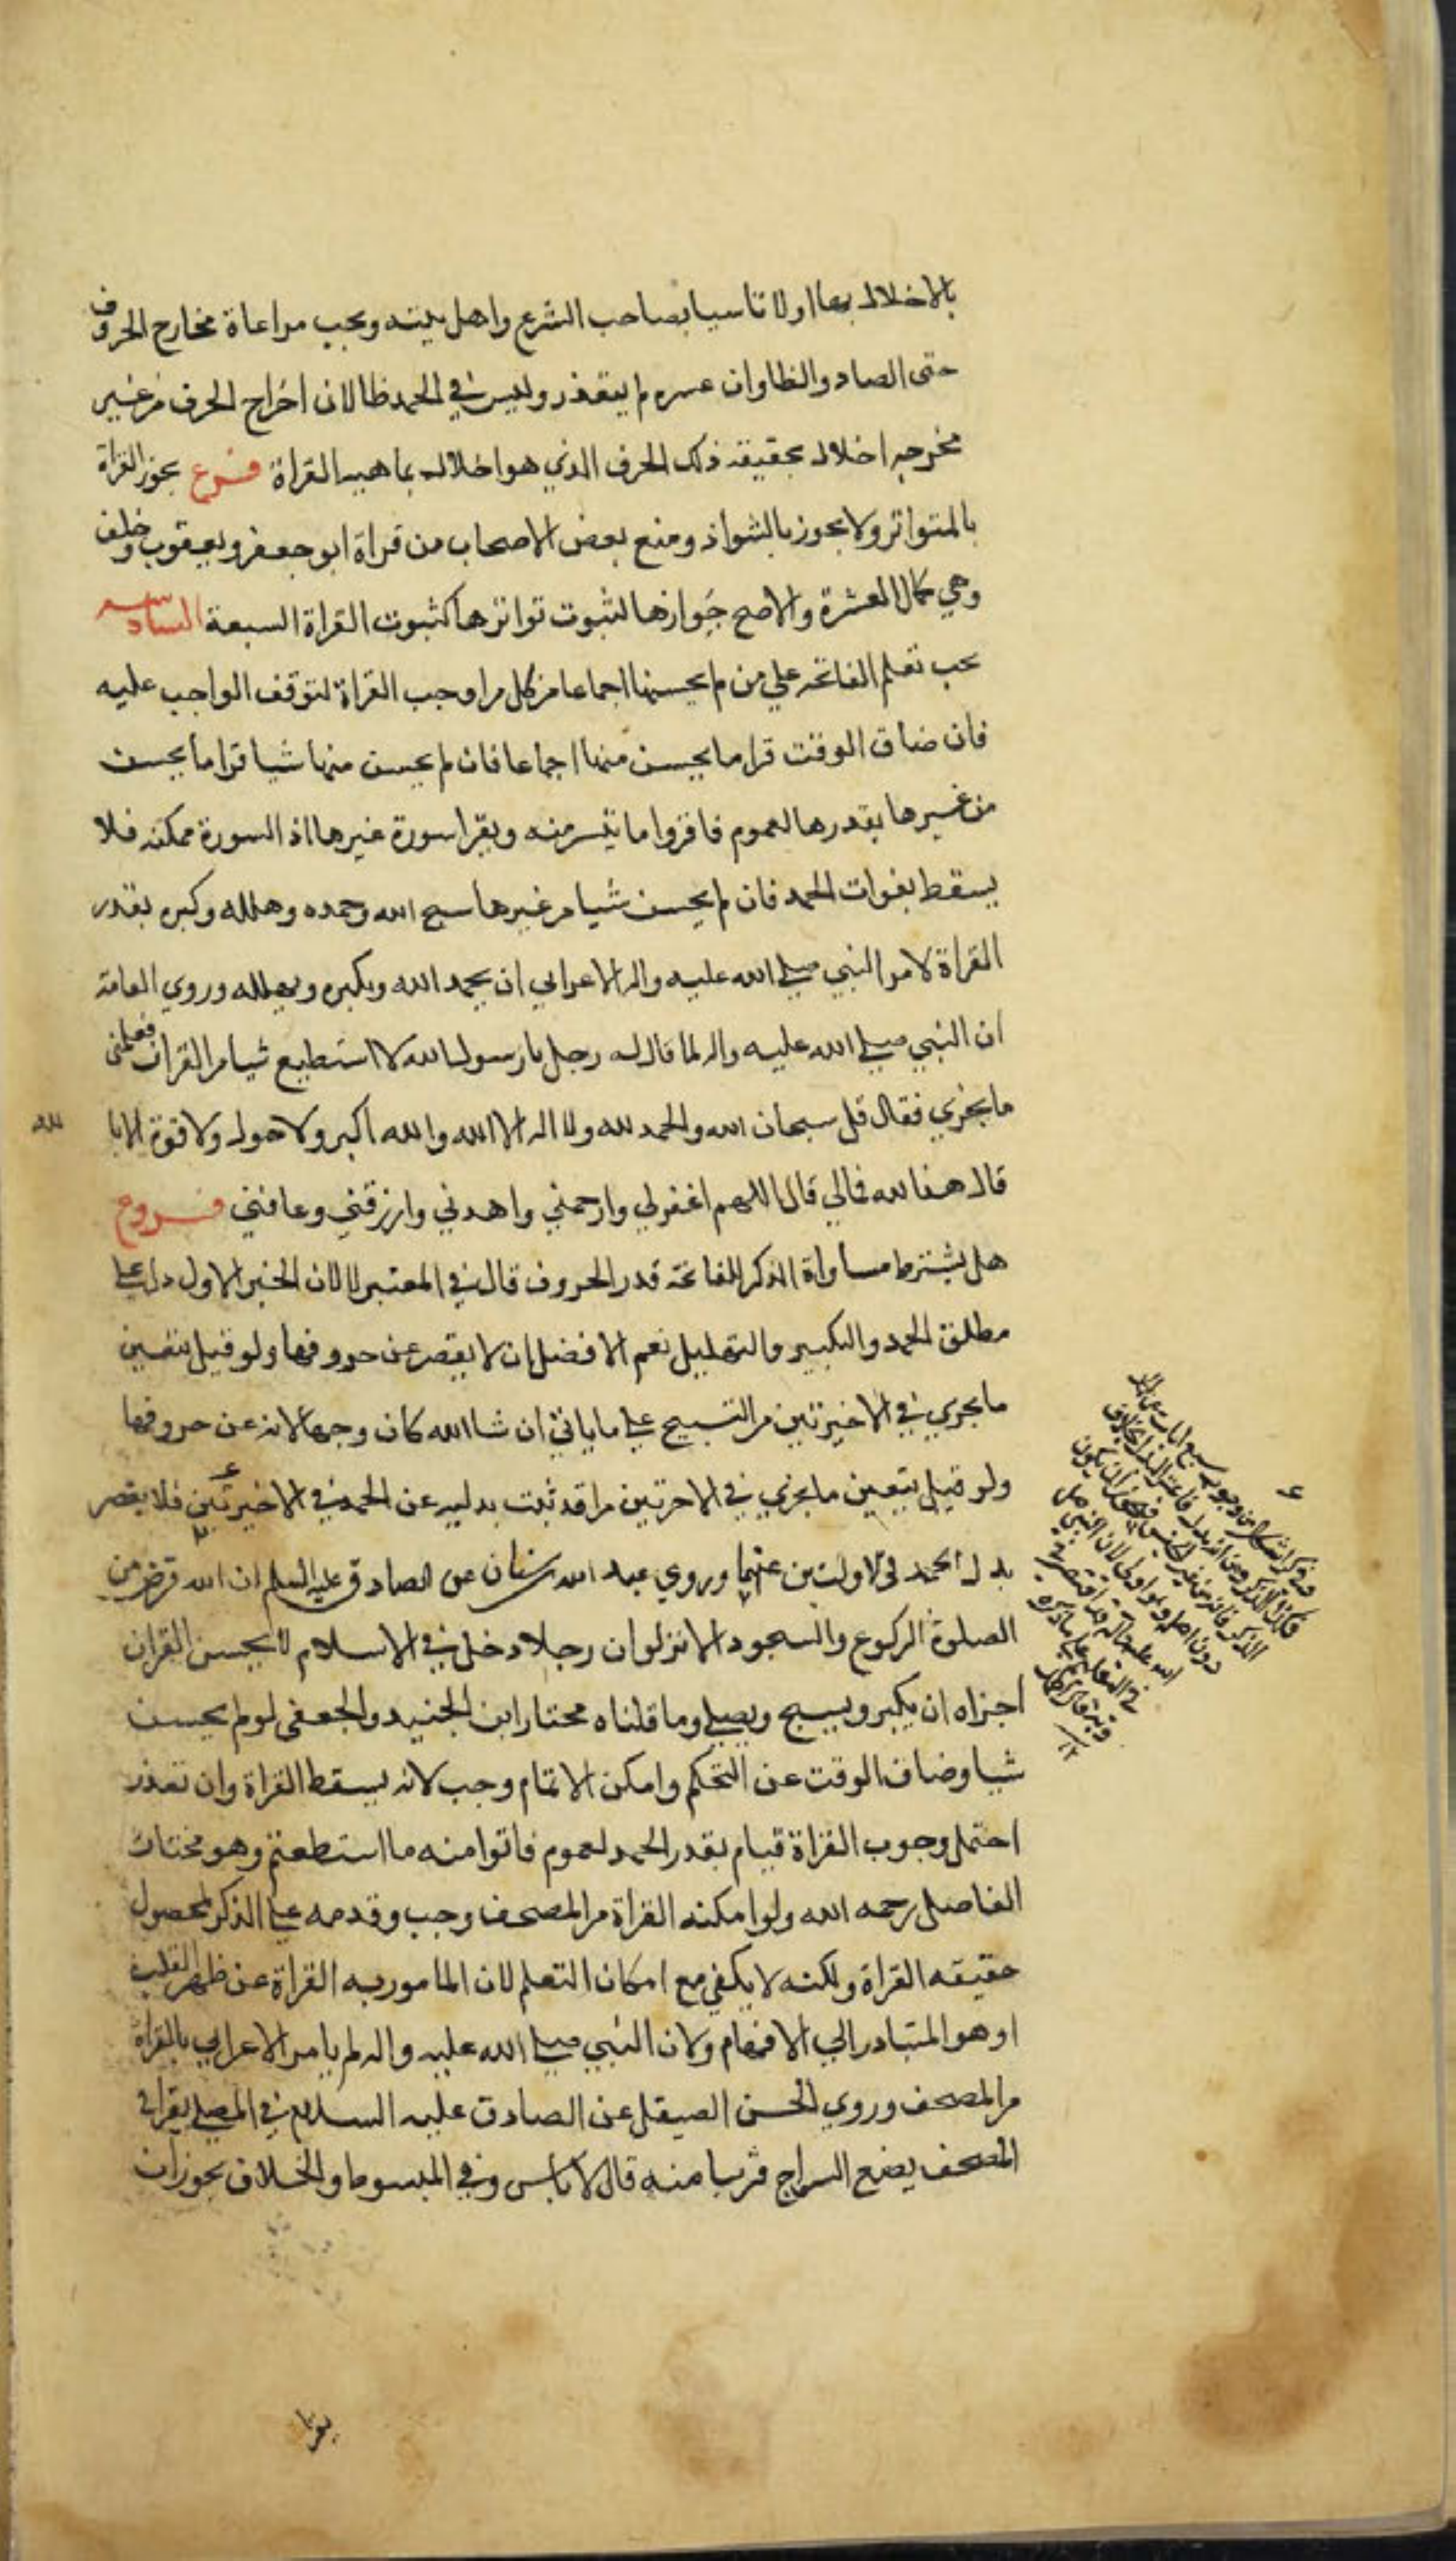 بالاخلال بها اولا تاسيا بصاحب الشرع واهل بيته ويجب مراعاة مخارج الحروف
حتى الضاد والظا وان عسر م لم يتعذر وليس في الحمد ظا لان اخراج الحرف من غير
مخرجه اخلال بحقيقة ذلك الحرف الذي هو اخلال بماهيه القراة فرع يجوز القراة
بالمتواتر ولا يجوز بالشواذ ومنع بعض الاصحاب من قراة ابو جعفر ويعقوب وخلف
وهي كمال العشرة والاصح جوازها لثبوت تواترها كثبوت القراة السبعة السادسه
يجب تعلم الفاتحه علي من لم يحسنها اجماعا من كل من اوجب القراة لتوقف الواجب عليه
فان ضاق الوقت قرا ما يحسن منها اجماعا فان لم يحسن منها شيا قرا ما يحسن
من غيرها بقدرها لعموم فاقروا ما تيسر منه ويقرا سورة غيرها اذ السورة ممكنه فلا
يسقط بفوات الحمد فان لم يحسن شيا من غيرها سبح الله وحمده وهلله وكبره بقدر
القراة لامر النبي صلي الله عليه واله الاعرابي ان يحمد الله ويكبره ويهلله وروي العامة
ان النبي صلي الله عليه واله لما قال له رجل يا رسول الله لا استطيع شيا من القران فعلمني
ما يجزي فقال قل سبحان الله والحمد لله ولا اله الا الله والله اكبر ولا حول ولا قوة الا با لله
قال هذا لله فمالي قال اللهم اغفر لي وارحمني واهدني وارزقني وعافني فروع
هل يشترط مساواة الذكر للفاتحة قدر الحروف قال في المعتبر لا لان الخبر الاول دل علي
مطلق الحمد والتكبير والتهليل نعم الافضل ان لا يقصر عن حروفها ولو قيل بتعين
ما يجزي في الاخيرتين من التسبيح علي ما ياتي ان شا الله كان وجها لانه عن حروفها
ولو قيل بتعين ما يجزي في الاخرتين من اقد ثبت بدليه عن الحمد في الاخيرتين فلا يقصر
بدل الحمد في الاولتين عنهما وروي عبد الله سنان عن الصادق عليه السلم ان الله فرض من
الصلوة الركوع والسجود الا تر لو ان رجلا دخل في الاسلام لا يحسن القران
اجزاه ان يكبر ويسبح ويصلي وما قلناه مختار ابن الجنيد والجعفي لو لم يحسن
شيا وضاق الوقت عن التحكم وامكن الاتمام وجب لانه يسقط القراة وان تعذر
احتمل وجوب القراة قيام بقدر الحمد لعموم فاتوا منه ما استطعتم وهو مختار
الفاضل رحمه الله ولو امكنه القراة من المصحف وجب وقدمه علي الذكر لحصول
حقيقه القراة ولكنه لا يكفي مع امكان التعلم لان المامور به القراة عن ظهر القلب
او هو المتبادر الي الافهام ولان النبي صلي الله عليه واله لم يامر الاعرابي بالقراة
من المصحف وروي الحسن الصيقل عن الصادق عليه السلام في المصلي يقرا في
المصحف يضع السراج قريبا منه قال لا باس وفي المبسوط والخلاف يجوز ان
يقرا